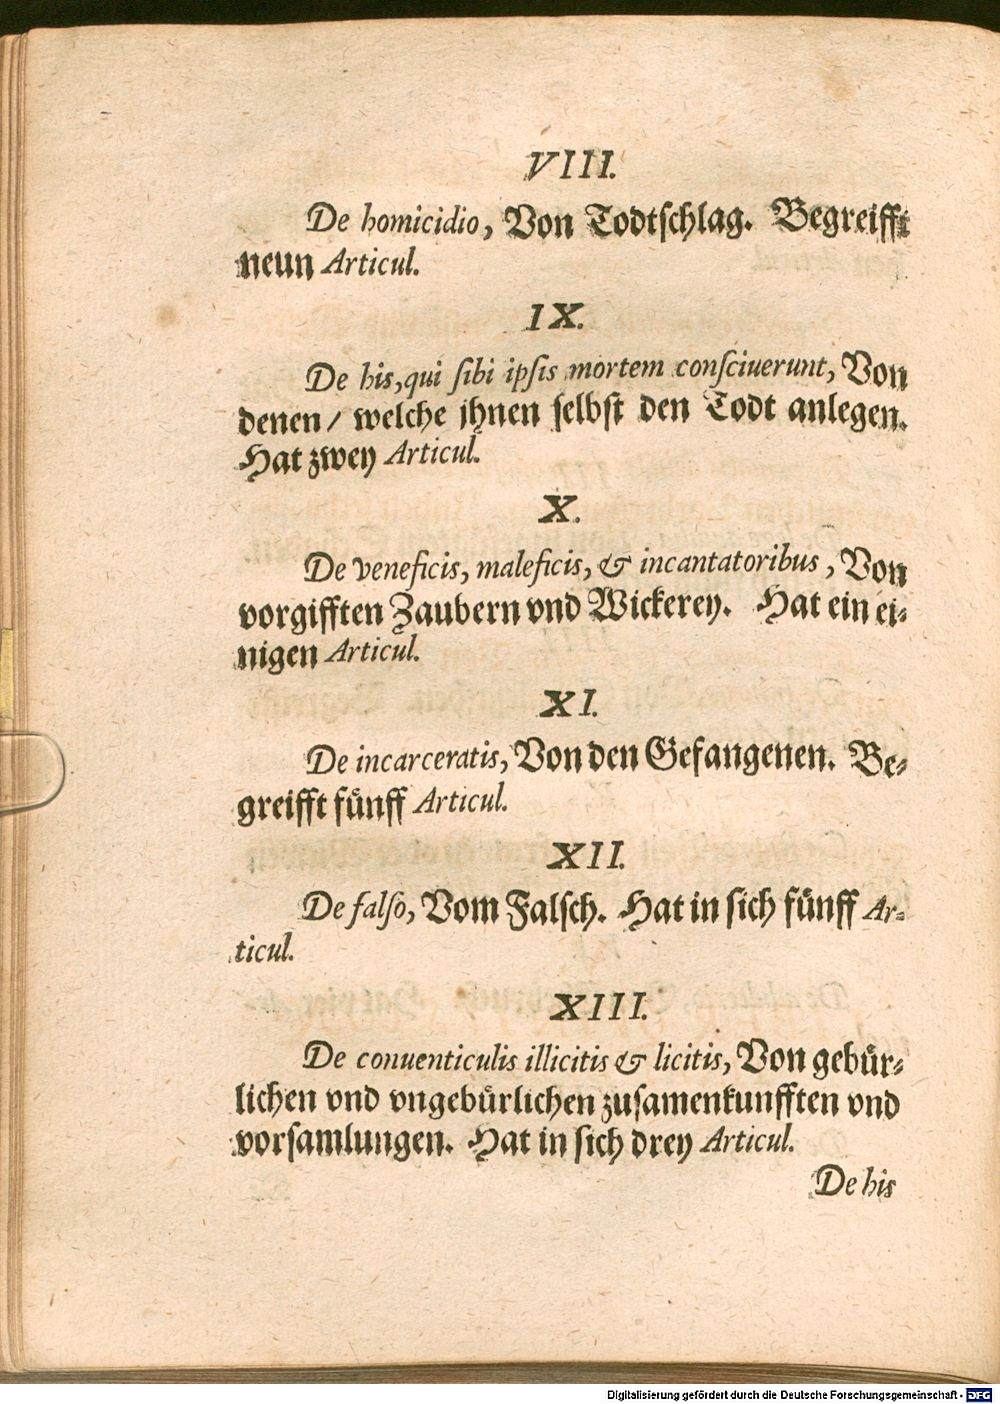 VIII.
De homicidio, Von Todtschlag. Begreifft
neun Articul.
IX.
De his, qui sibi ipsis mortem consciuerunt, Von
denen / welche jhnen selbst den Todt anlegen.
Hat zwey Articul.
X.
De veneficis, maleficis, & incantatoribus, Von
vorgifften Zaubern vnd Wickerey. Hat ein ei-
nigen Articul.
XI.
De incarceratis, Von den Gefangenen. Be-
greifft fünff Articul.
XII.
De falso, Vom Falsch. Hat in sich fünff Ar-
ticul.
XIII.
De conuenticulis illicitis & licitis, Von gebür-
lichen vnd vngebürlichen zusamenkunfften vnd
vorsamlungen. Hat in sich drey Articul.
De his
Digitalisierung gefördert durch die Deutsche Forschungsgemeinschaft - DFG